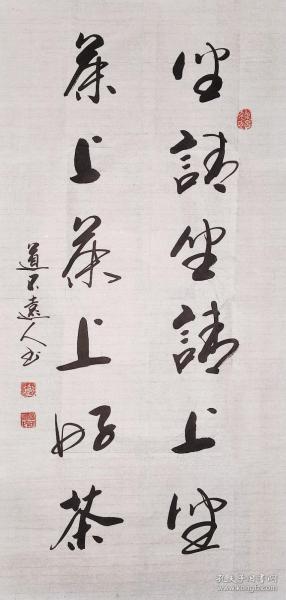 坐請坐請上坐
茶上茶上好茶
道不遠人书
孔夫子旧书网